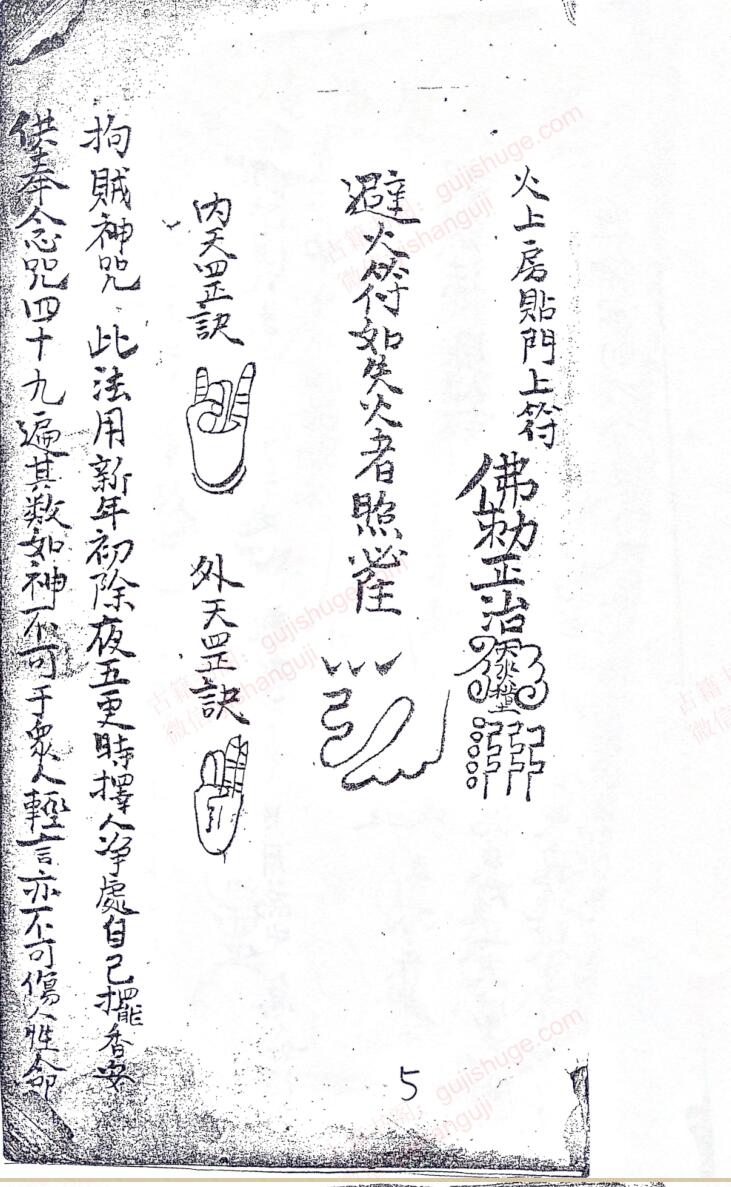 火上房貼門上符
佛勅正治
避火符如失火者照
内天罡訣
外天罡訣
拘賊神咒 此法用新年初除夜五更時擇人净處自己擺香安
供奉念咒四十九遍其数如神不可于衆人輕言亦不可傷人性命
5
古籍 gujishuge.com
微信 shanguji